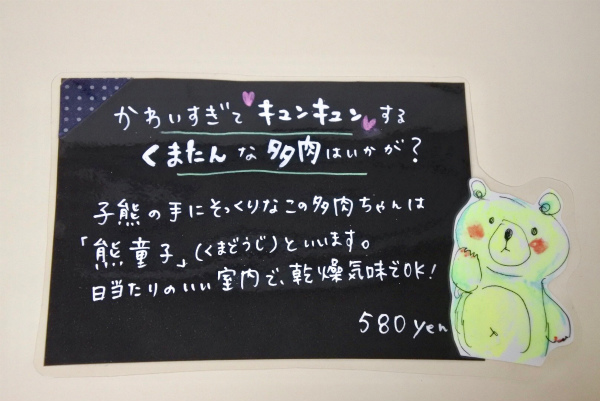 かわいすぎてキュンキュンする
くまたんな多肉はいかが？
子熊の手にそっくりなこの多肉ちゃんは
「熊童子」(くまどうじ)といいます。
日当たりのいい室内で、乾燥気味でOK!
580yen